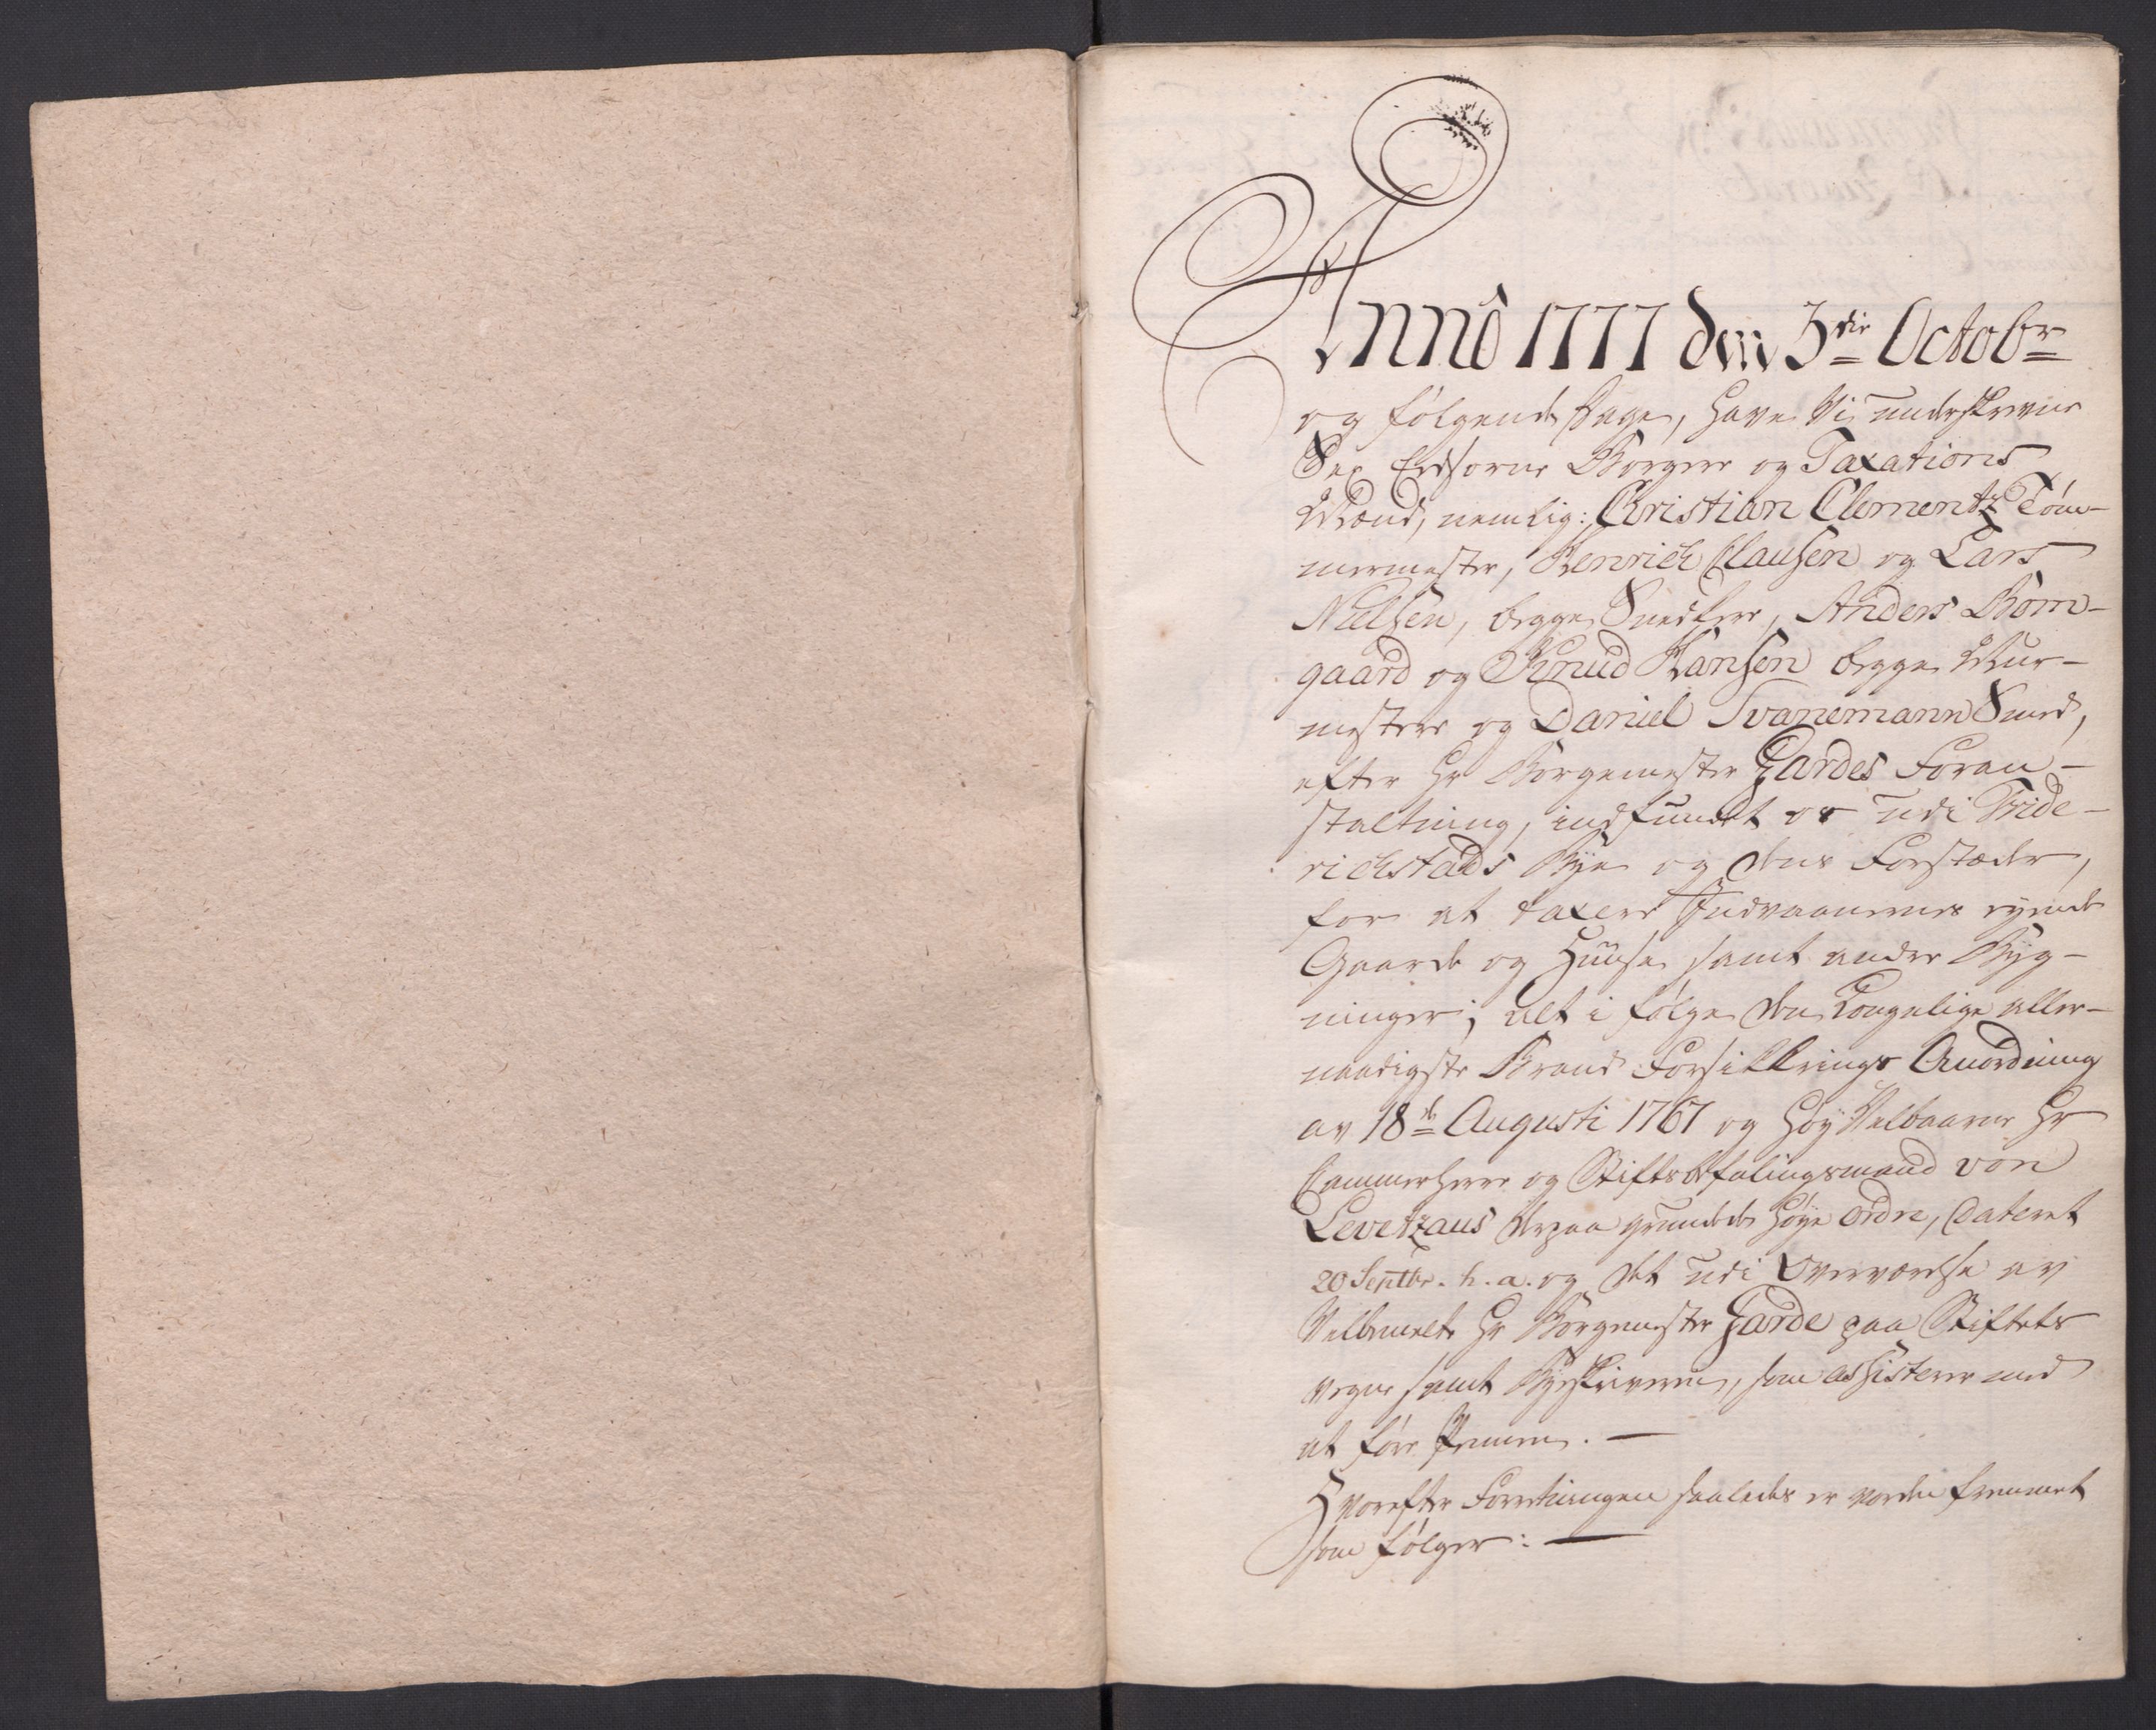 Anno 1777 den 3die Octobr
og følgende Dage, have Vi underskrevne
Sex Eedsorne Borgere og Taxations
Mænd, nemlig: Christian Clementz Tøm-
mermester, Henrich Clausen og Lars
Nielsen, begge Snedkere, Anders Bom-
gaard og Knud Hansen begge Mur-
mestere og Daniel Svanemann Smed,
efter Hr Borgemester Gardes Foran-
staltning, indfundet os udi Fride-
richstads Bye og dens Forstæder,
for at taxere Indvaanernes eyende
Gaarde og Huuse samt andre Byg-
ninger; alt i følge den Kongelige aller-
naadigste Brand Forsikkrings Anordning
av 18de Augusti 1767 og Høy Velbaarne Hr
Cammerherre og Stiftsbefalingsmand von
Levetzaus derpaa grundede høye Ordre, dateret
20 Septbr. h. a. og det udi Overværelse av
Velbemelte Hr Borgemester Garde paa Stiftets
vegne samt Byeskriveren, som assisterer med
at føre Pennen. —
Hvorefter Forretningen saaledes er vorden fremmet
som følger: —